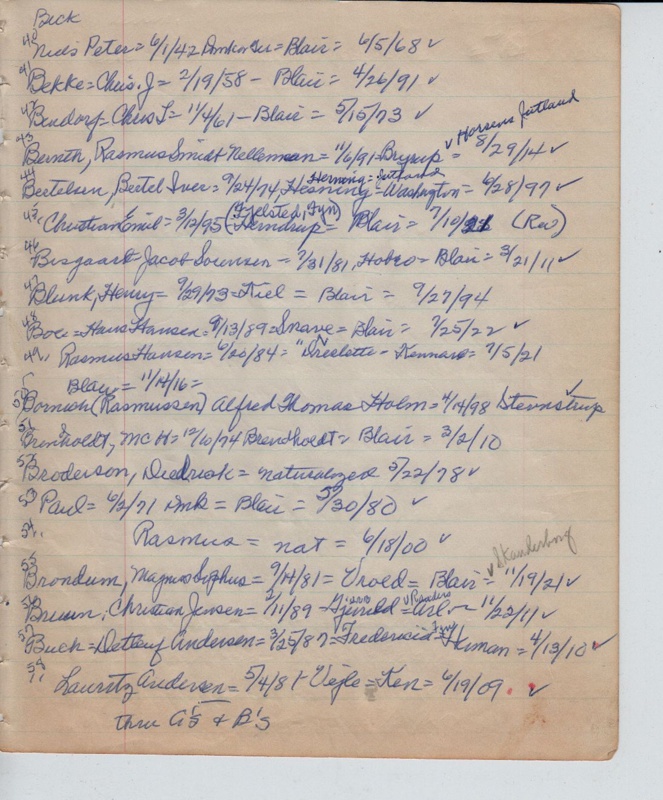 Beck
40 Niels Peter = 6/1/42 = Blair = 6/5/68 ✓
41 Bekke = Chris. J = 2/19/58 - Blair = 4/26/91 ✓
42 Bendorf = Chris L = 11/4/61 - Blair = 5/15/73 ✓
✓ Horsens Jutland
43 Bernth, Rasmus Smidt Nellemann = 11/6/91 - Bryrup = 8/29/14 ✓
Herning = Jutland
44 Bertelsen, Bertel Iver = 9/24/74, Hesning = Washington = 6/28/97 ✓
45 " Christian Emil = 3/12/95 (Fjelsted, Fyn) = Blair = 7/10/21 (Rev)
46 Bisgaard Jacob Sorensen = 7/31/81, Hobro = Blair = 3/21/11 ✓
47 Blunk, Henry = 9/29/73 = Kiel = Blair = 9/27/94
48 Boe = Hans Hansen = 9/13/89 = Snave = Blair = 7/25/22 ✓
49 " Rasmus Hansen = 6/20/84 = " - Kennard = 7/5/21
Blair = 11/14/16 =
50 Bornich (Rasmussen) Alfred Thomas Holm = 4/14/98 Stenstrup ✓
51 Brenholdt, Mc H = 12/10/74 Brendholdt = Blair = 3/2/10
52 Broderson, Diedrick = naturalized 5/22/78 ✓
53 Paul = 6/2/71 = Blair = 5/30/80 ✓
54 " Rasmus = nat = 6/18/00 ✓
✓ Skanderborg
55 Brondum, Magnus Sophus = 9/14/81 = Vroed = Blair = 11/19/21 ✓
✓ Randers
56 Bruun, Christian Jensen = 2/11/89 = Gjerrild = Arl. - 11/22/11 ✓
57 Buck = Detlauf Andersen = 3/25/87 = Fredericia = Herman = 4/13/10 ✓
58 " Lauritz Andersen = 5/4/81 - Vejle = Ken = 6/19/09 . . ✓
thru A's & B's